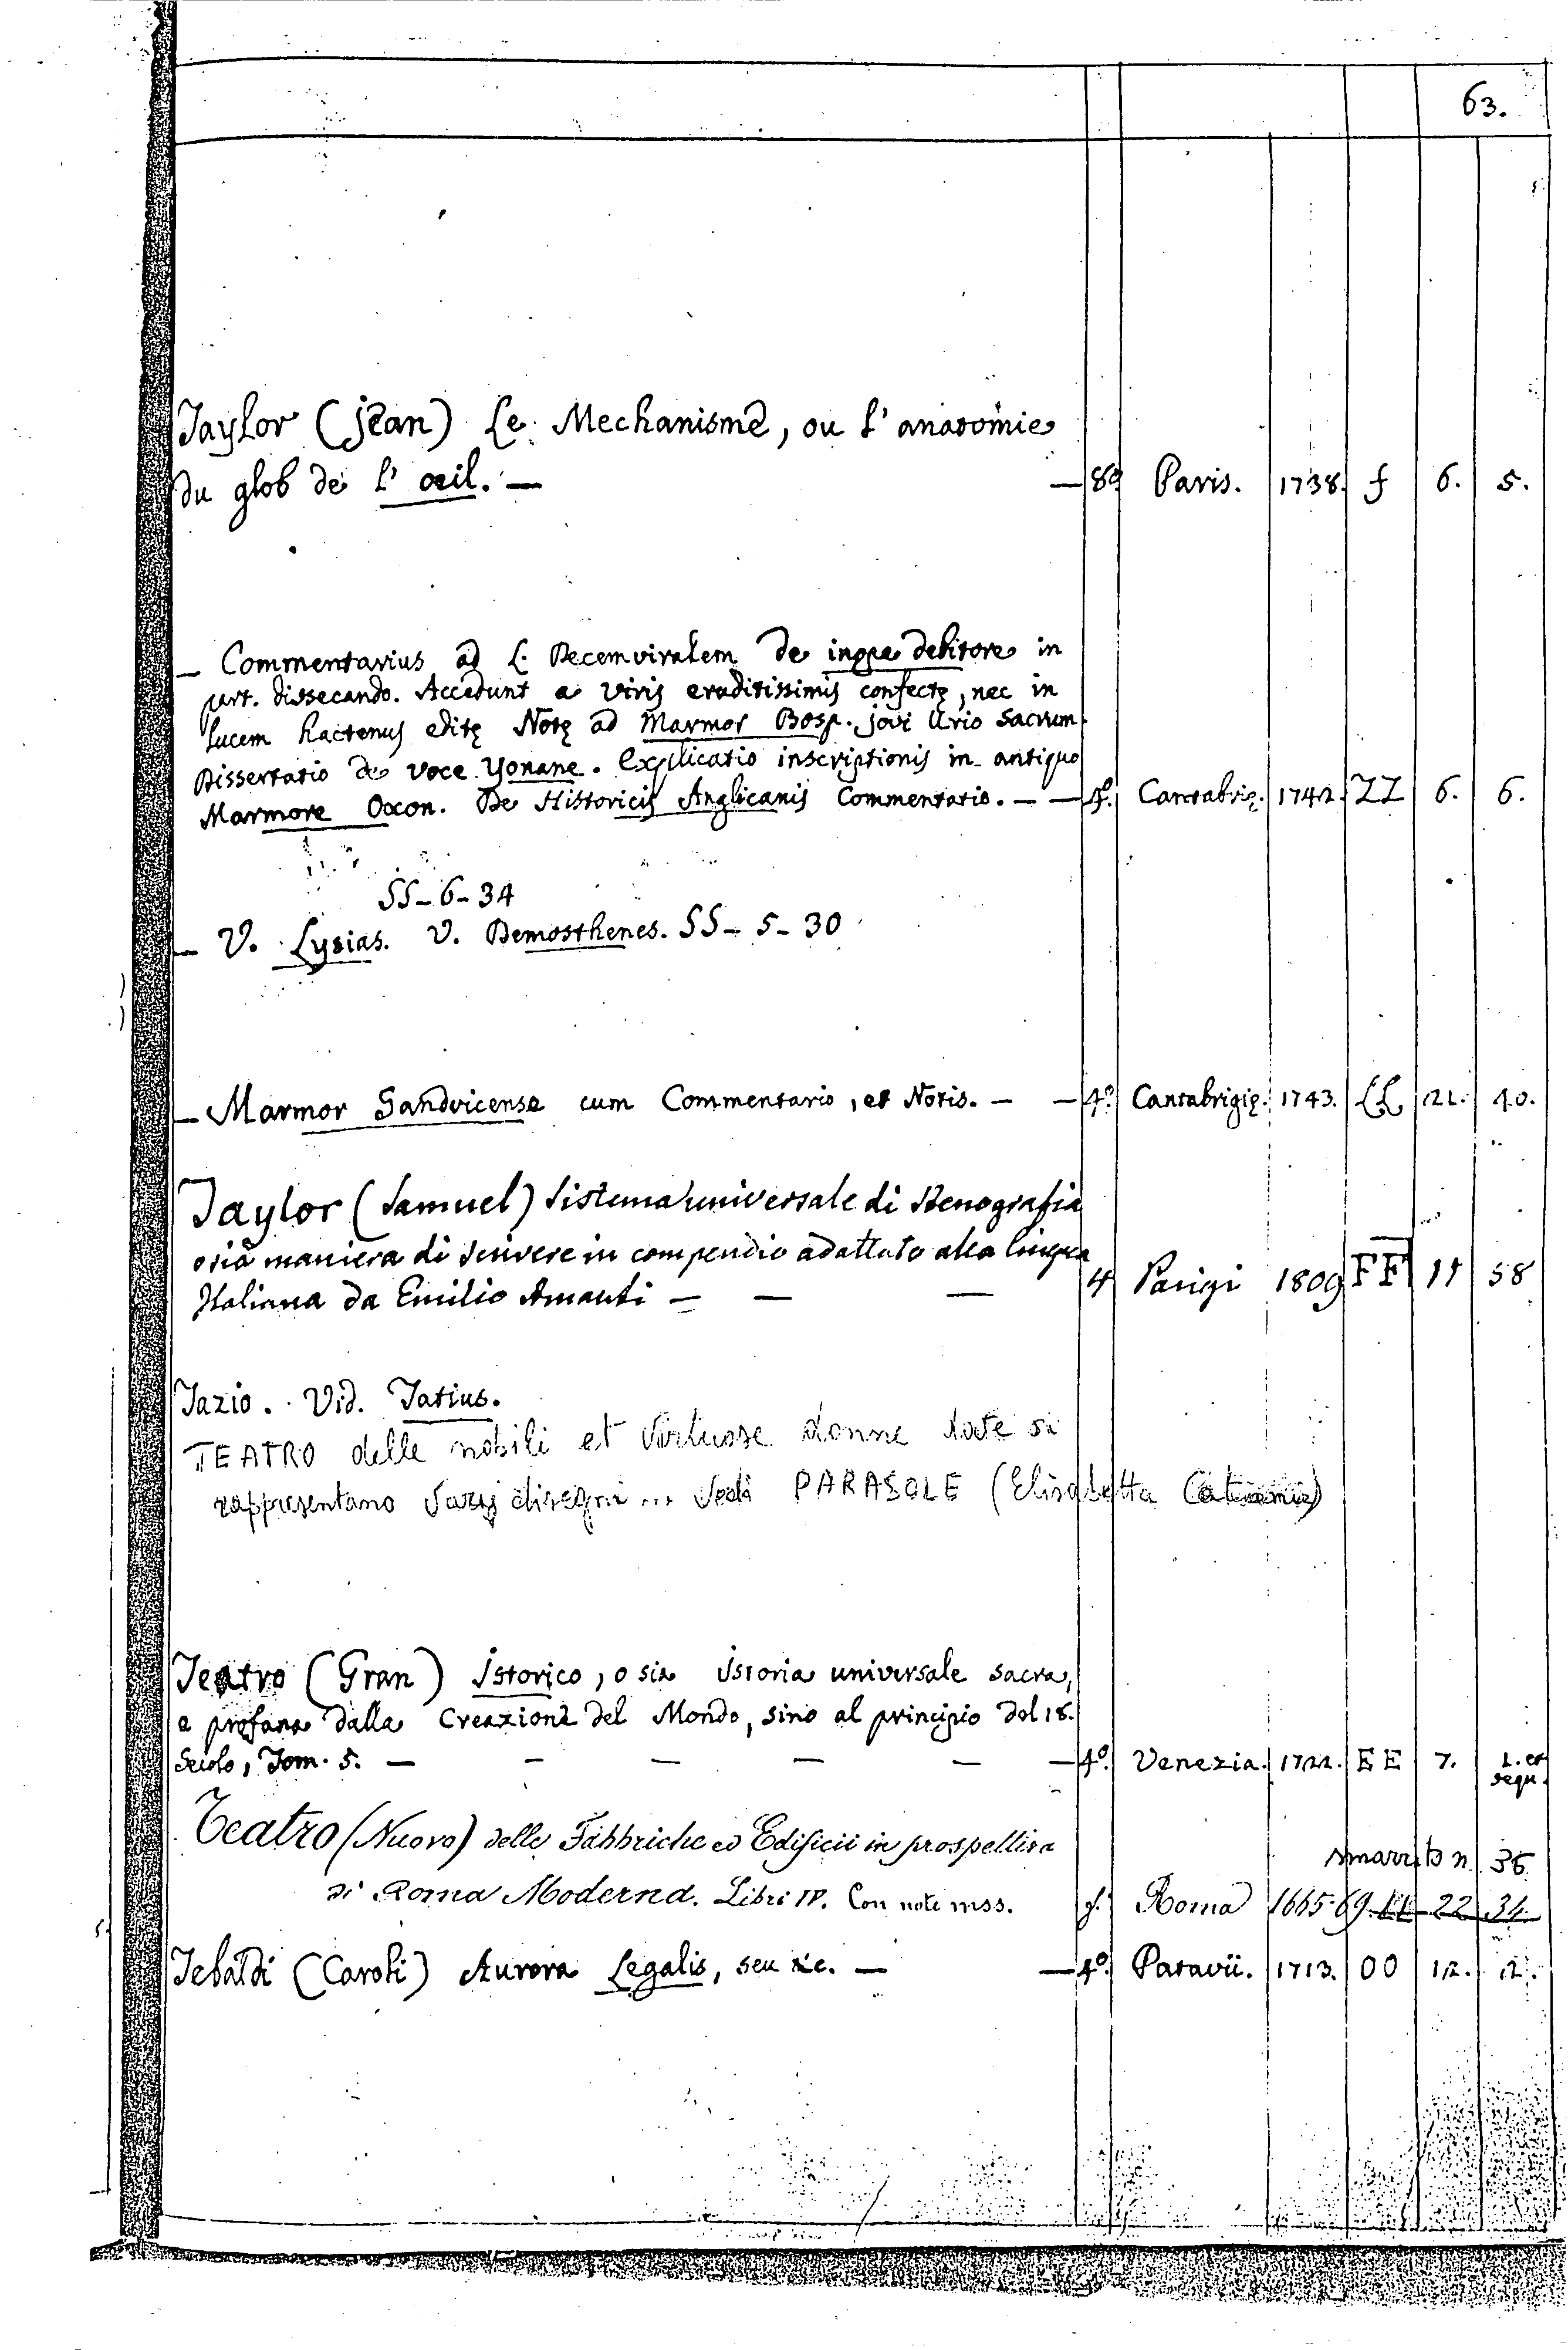 63.
Taylor (Jean) Le Mechanisme, ou l'anatomie
du glob de l'œil. — — 8º Paris. 1738. f 6. 5.
— Commentarius ad L. Decemviralem de inope debitore in
part. dissecando. Accedunt a viris eruditissimis confectę, nec in
lucem hactenus editę Notę ad Marmor Bosp. Jovi Urio sacrum
Dissertatio de voce Yonane. Explicatio inscriptionis in antiquo
Marmore Oxon. De Historicis Anglicanis Commentatio. — — 4º. Cantabrig. 1742. ZZ 6. 6.
SS-6-34
— V. Lysias. V. Demosthenes. SS-5-30
— Marmor Sandvicense cum Commentario, et Notis. — — 4º. Cantabrigię. 1743. LL 21. 40.
Taylor (Samuel) Sistema universale di Stenografia
osia maniera di scrivere in compendio adattato alla lingua
Italiana da Emilio Amanti — — — 4 Parigi 1809 FF 11 58
Tazio. Vid. Tatius.
TEATRO delle nobili et virtuose donne dove si
rappresentano varij disegni ... vedi PARASOLE (Elisabetta Catanea)
Teatro (Gran) Istorico, o sia Istoria universale sacra,
e profana dalla Creazione del Mondo, sino al principio del 18.
Secolo, Tom. 5. — — — — — — 4º. Venezia. 1722. EE 7. 1. et
sequ.
Teatro (Nuovo) delle Fabbriche ed Edificii in prospettiva
smarrito n 36
di Roma Moderna. Libri IV. Con note mss. f. Roma 1665-69 22 34
Tebaldi (Caroli) Aurora Legalis, seu &c. — — 4º. Patavii. 1713. OO 12. 2.